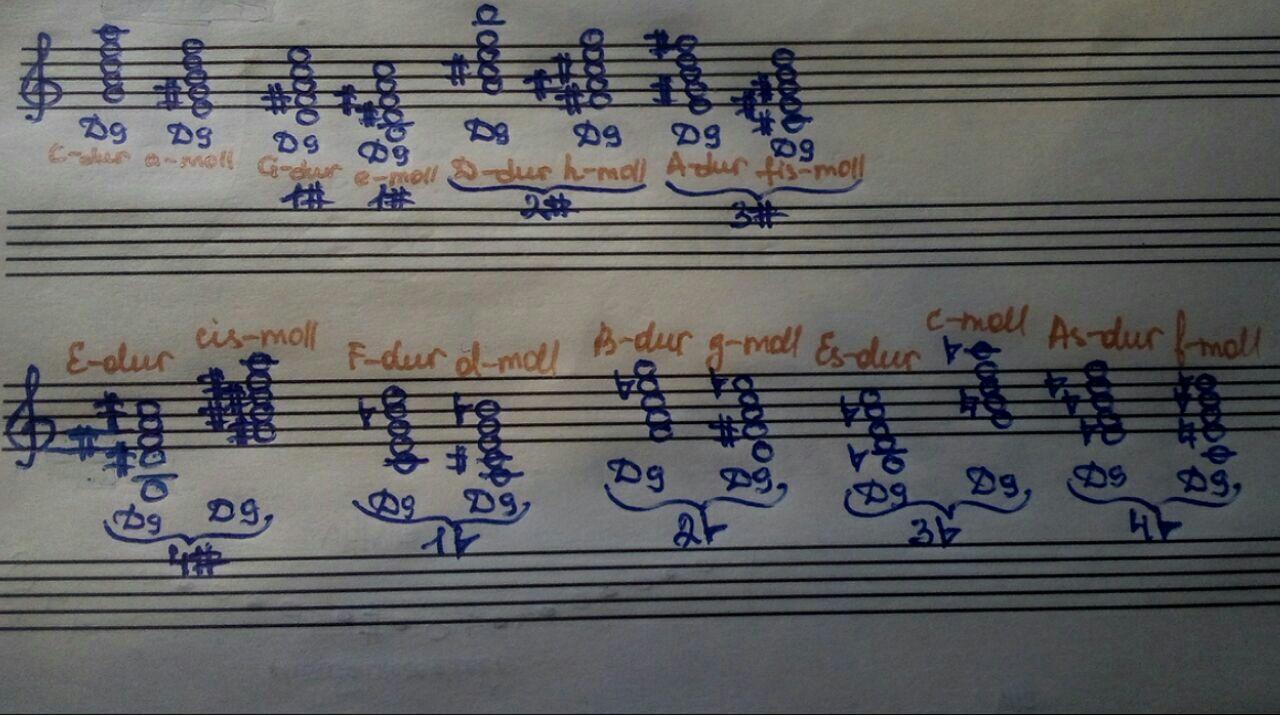 D9 D9 D9 D9 D9 D9 D9 D9
C-dur a-moll G-dur e-moll D-dur h-moll A-dur fis-moll
1# 1# 2# 3#
E-dur cis-moll F-dur d-moll B-dur g-moll Es-dur c-moll As-dur f-moll
D9 D9 D9 D9 D9 D9 D9 D9 D9 D9
4# 1♭ 2♭ 3♭ 4♭